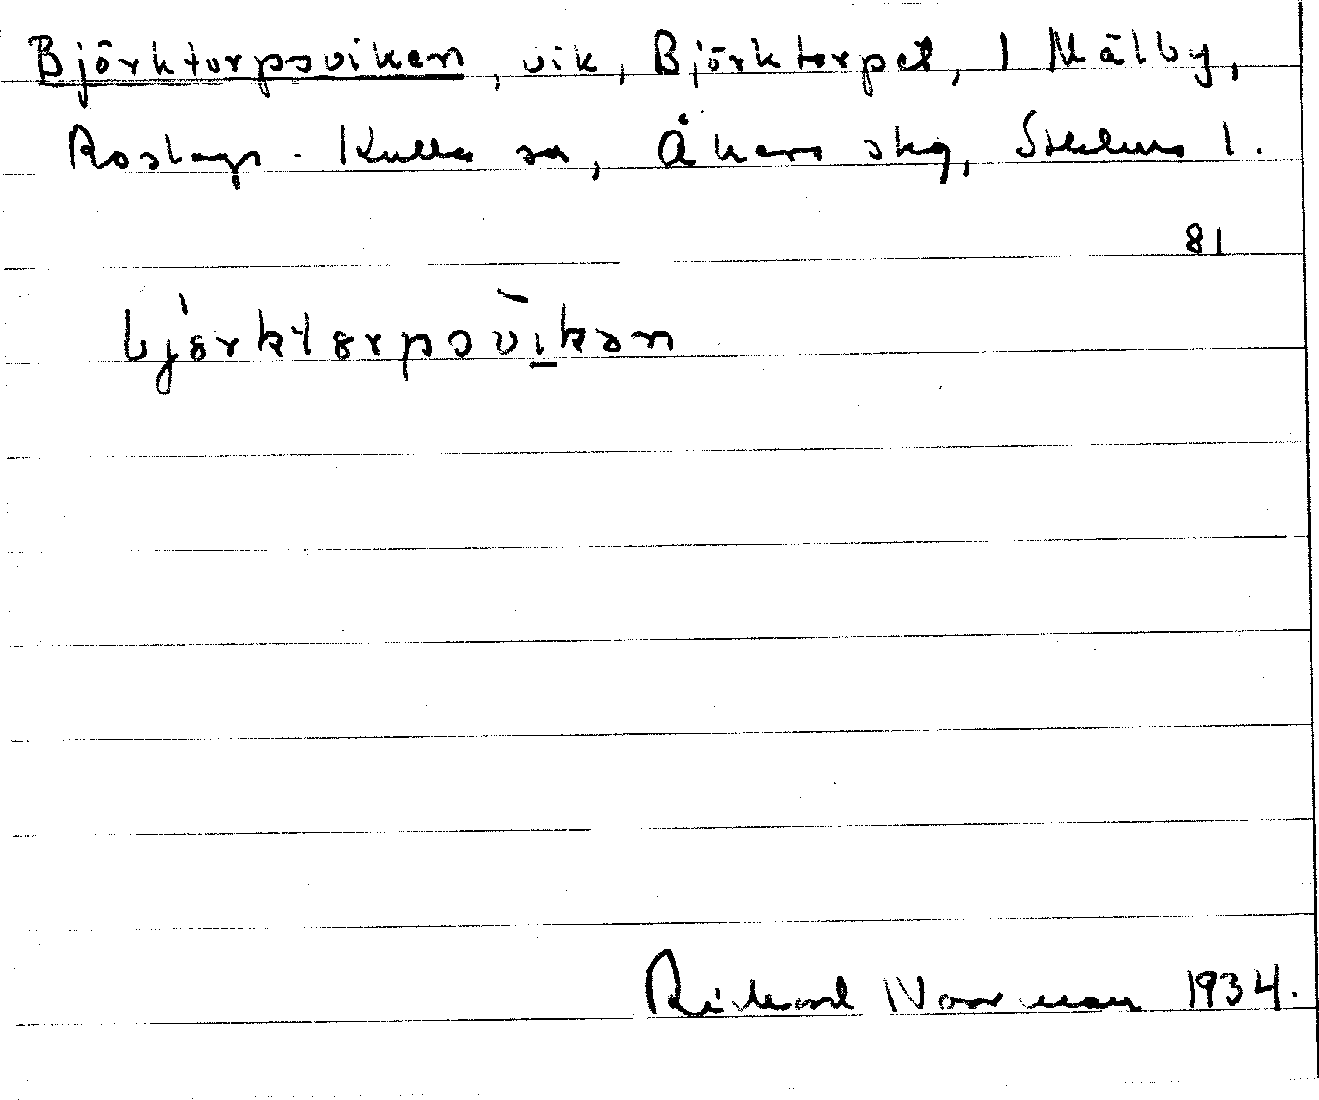 Björktorpsviken, vik, Björktorpet, 1 Mälby,
Roslags-Kulla sn, Åkers skg, Sthlms l.
81
björktorpsvikən
Rickard Norrman 1934.